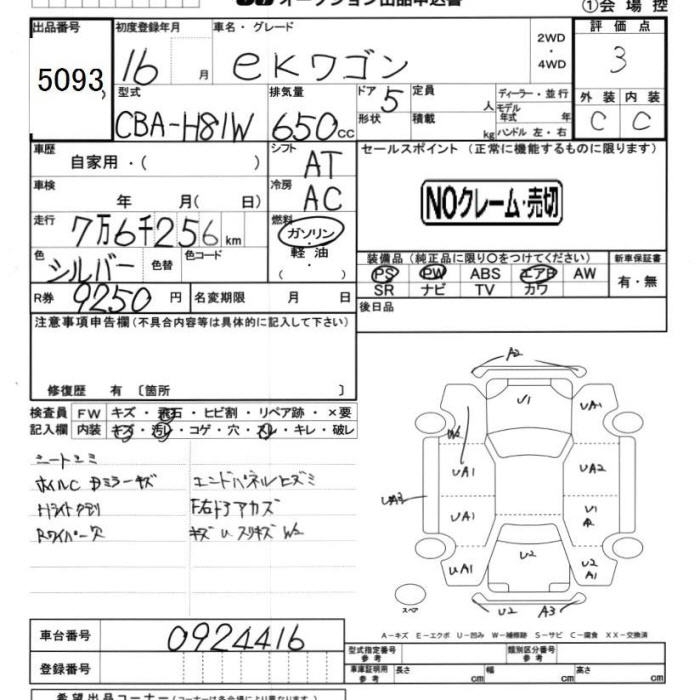 オークション出品申込書
①会場控
出品番号 5093
初度登録年月 16 月
車名・グレード eKワゴン
2WD・4WD
評価点 3
型式 CBA-H81W
排気量 650cc
ドア 5 形状
定員 人
積載 kg
ディーラー・並行
モデル年式 年
ハンドル 左・右
外装 内装
C C
車歴 自家用・( )
シフト AT
セールスポイント (正常に機能するものに限ります)
車検 年 月( 日)
冷房 AC
NOクレーム・売切
走行 7万6千256km
燃料 ガソリン・軽油・( )
色 シルバー 色替 色コード
装備品 (純正品に限り○をつけてください) 新車保証書
PS PW ABS エアB AW 有・無
SR ナビ TV カワ
R券 9250円 名変期限 月 日
後日品
注意事項申告欄(不具合内容等は具体的に記入して下さい)
修復歴 有〔箇所 〕
検査員記入欄
FW キズ・飛石・ヒビ割・リペア跡・×要
内装 キズ・汚レ・コゲ・穴・スレ・キレ・破レ
シートユミ
ホイルC Dミラーキズ エンドパネルヒズミ
Hライトクモリ F右ドアカズ
Rワイパー欠 キズU スリキズ W2
A2
U1 UA1
W2
UA1 UA2
UA3
UA1 U1 A2
UA1 U2 U2 A1
スペア U2 A3
A−キズ E−エクボ U−凹み W−補修跡 S−サビ C−腐食 XX−交換済
車台番号 0924416
型式指定番号 参考 類別区分番号 参考
登録番号
車庫証明用 参考 長さ cm 幅 cm 高さ cm
希望出品コーナー(コーナーは各会場により異なります)